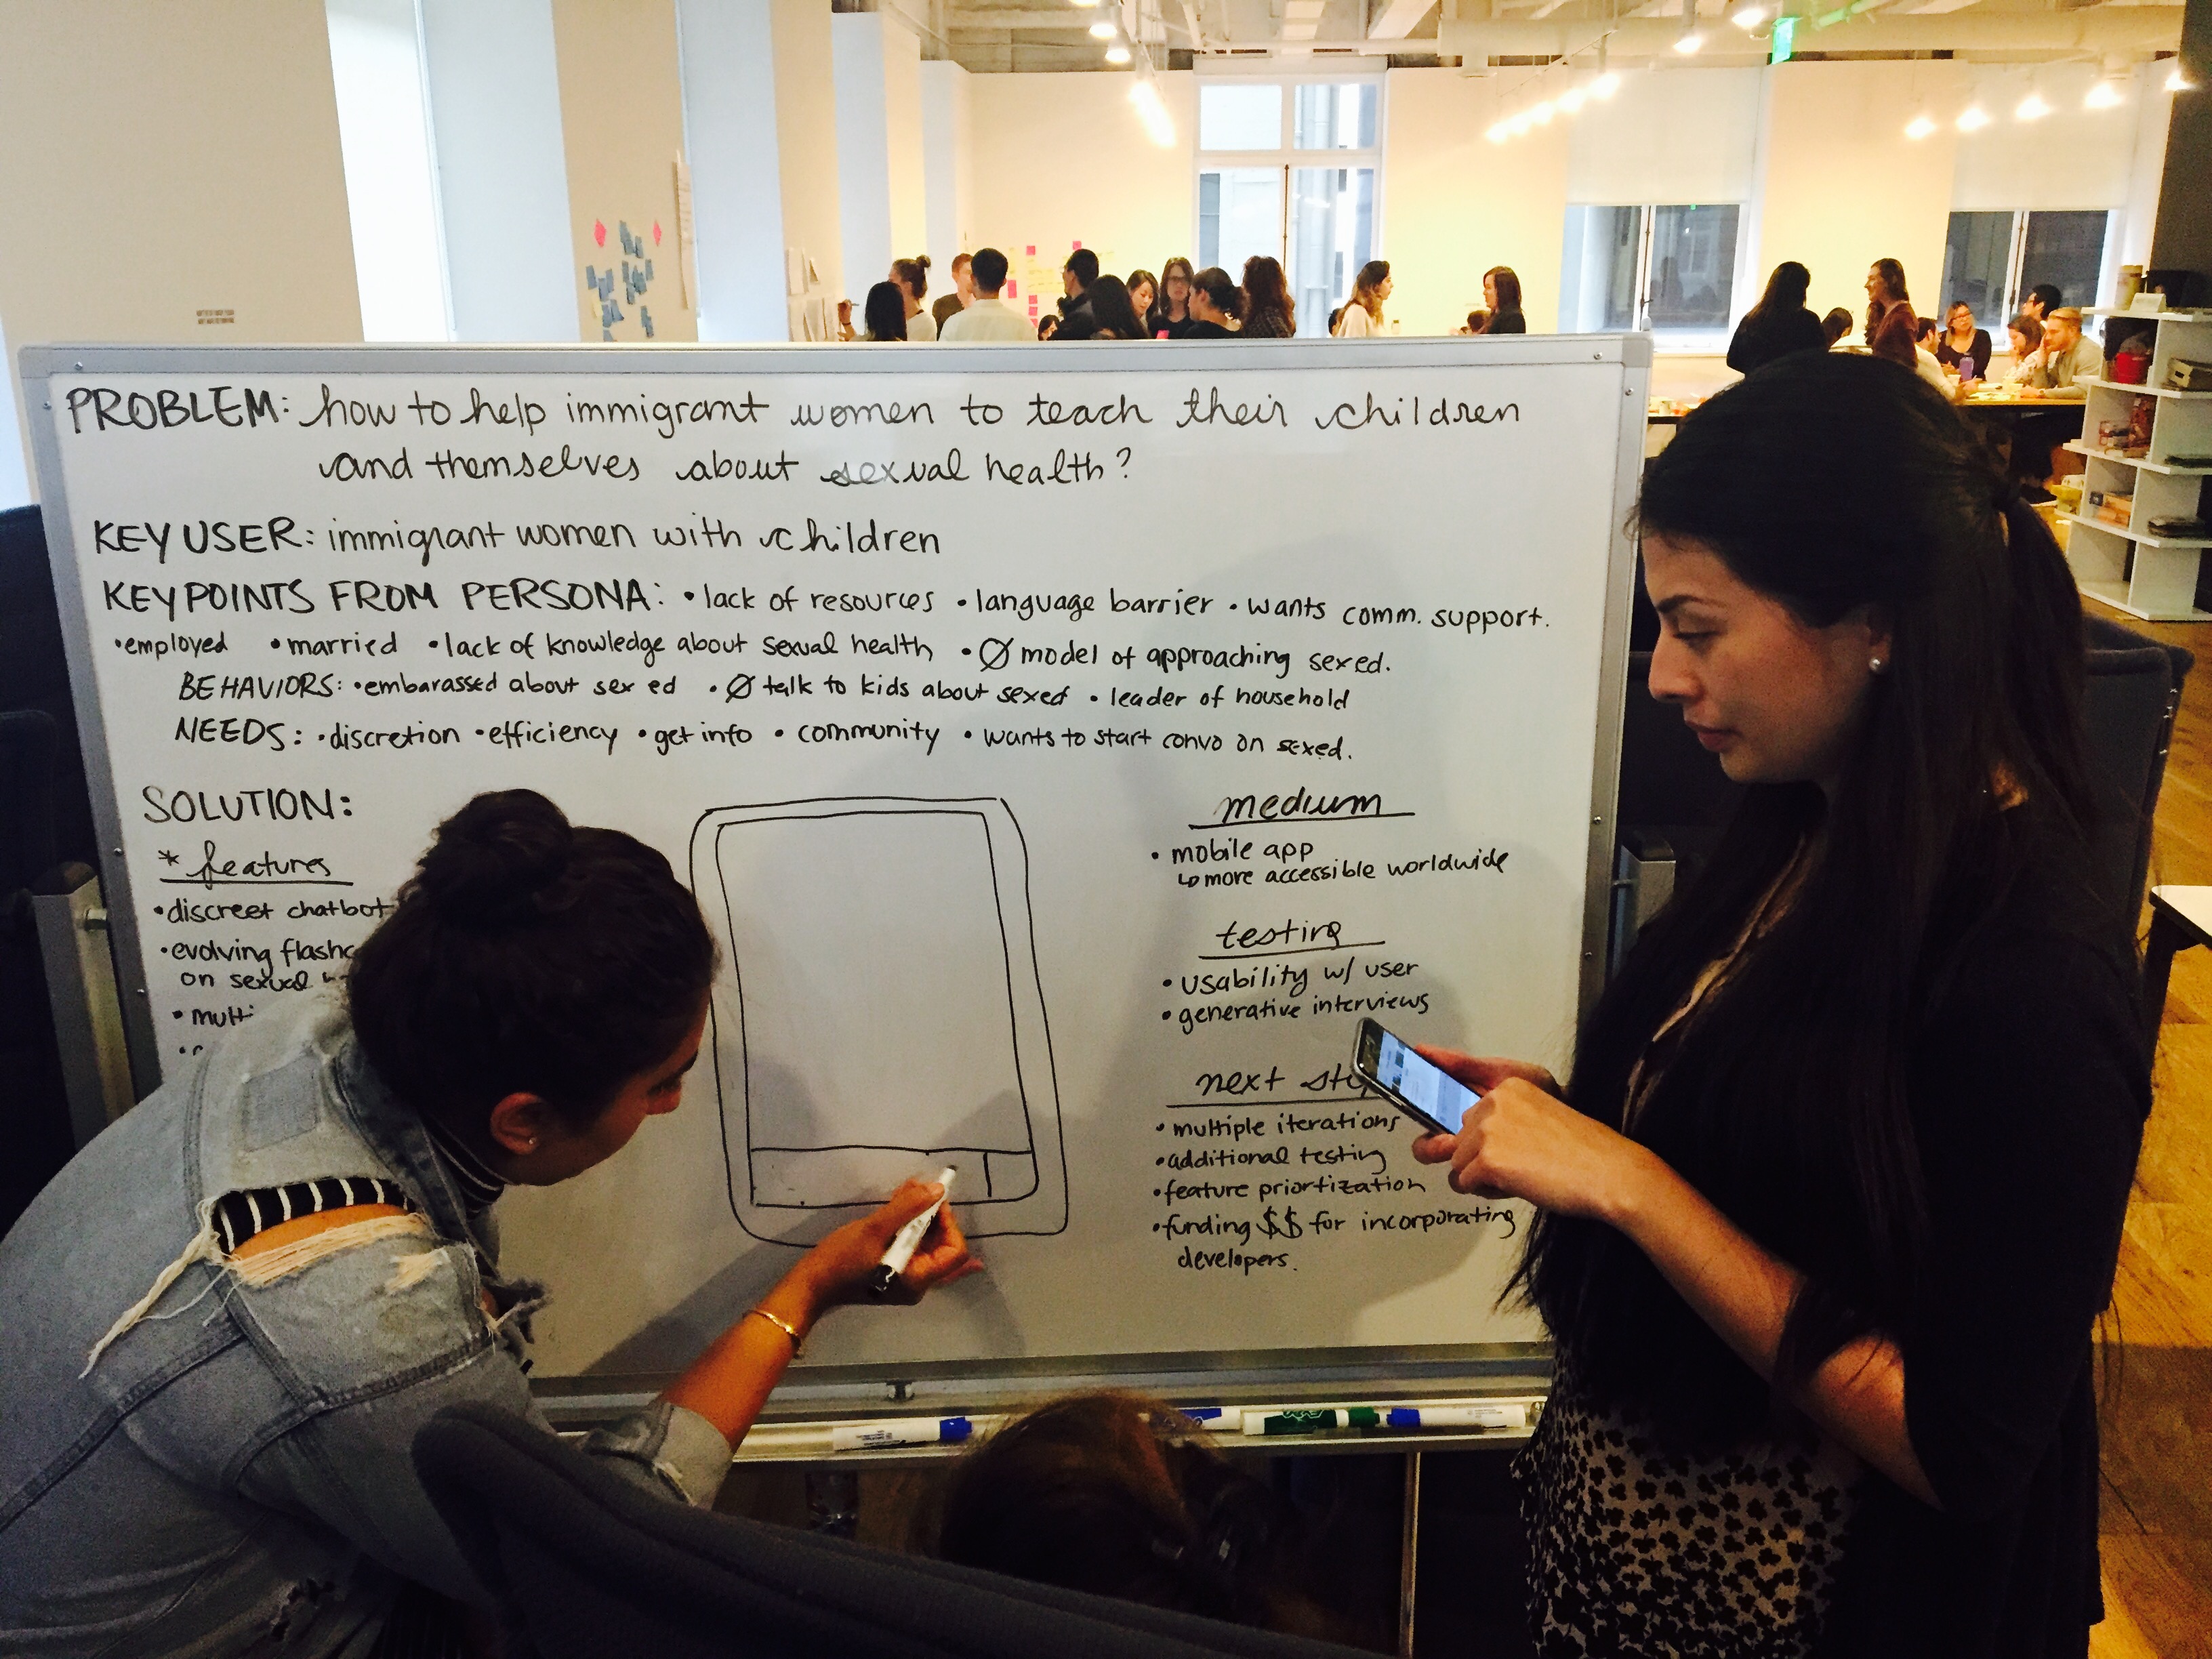 PROBLEM: how to help immigrant women to teach their children
and themselves about sexual health?
KEY USER: immigrant women with children
KEY POINTS FROM PERSONA: • lack of resources • language barrier • wants comm. support.
• employed • married • lack of knowledge about sexual health • Ø model of approaching sexed.
BEHAVIORS: • embarassed about sex ed • Ø talk to kids about sexed • leader of household
NEEDS: • discretion • efficiency • get info • community • wants to start convo on sexed.
SOLUTION:
* features
• discreet chatbot
• evolving flashc
on sexual
• multi
medium
• mobile app
↳ more accessible worldwide
testing
• usability w/ user
• generative interviews
next ste
• multiple iterations
• additional testing
• feature priortization
• funding $$ for incorporating
developers.